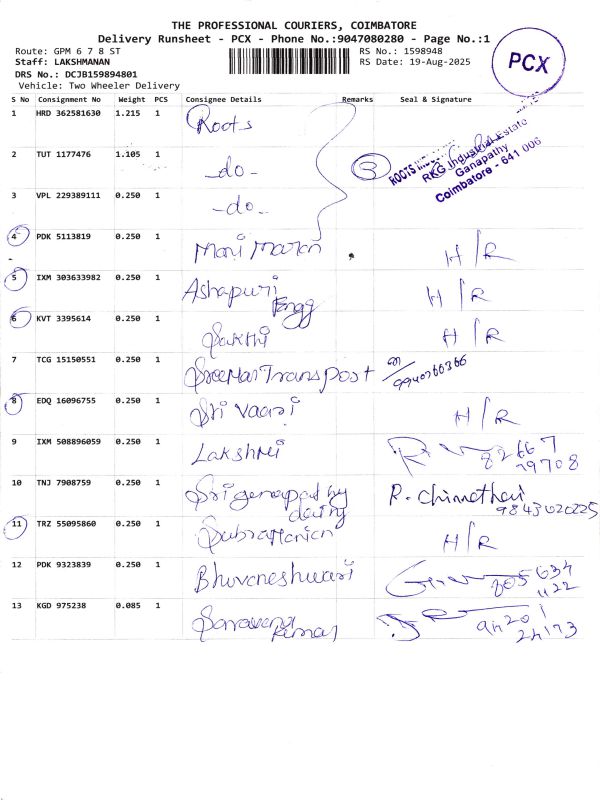 THE PROFESSIONAL COURIERS, COIMBATORE
Delivery Runsheet - PCX - Phone No.:9047080280 - Page No.:1
Route: GPM 6 7 8 ST
Staff: LAKSHMANAN
DRS No.: DCJB159894801
Vehicle: Two Wheeler Delivery
RS No.: 1598948
RS Date: 19-Aug-2025
PCX
S No Consignment No Weight PCS Consignee Details Remarks Seal & Signature
1 HRD 362581630 1.215 1 Roots
2 TUT 1177476 1.105 1 -do- 3
ROOTS
RKG Industrial Estate
Ganapathy
Coimbatore - 641 006
3 VPL 229389111 0.250 1 -do-
4 PDK 5113819 0.250 1 Mani Maran H/R
5 IXM 303633982 0.250 1 Ashapuri Engg H/R
6 KVT 3395614 0.250 1 Sakthi H/R
7 TCG 15150551 0.250 1 Sree Hari Transpost
8 EDQ 16096755 0.250 1 Sri Vaari H/R
9 IXM 508896059 0.250 1 Lakshmi 82667
79708
10 TNJ 7908759 0.250 1 Sri ganapathy dairy R. Chinnathai
9843020225
11 TRZ 55095860 0.250 1 Subramanian H/R
12 PDK 9323839 0.250 1 Bhuvaneshwari
13 KGD 975238 0.085 1 Saravana Kumar